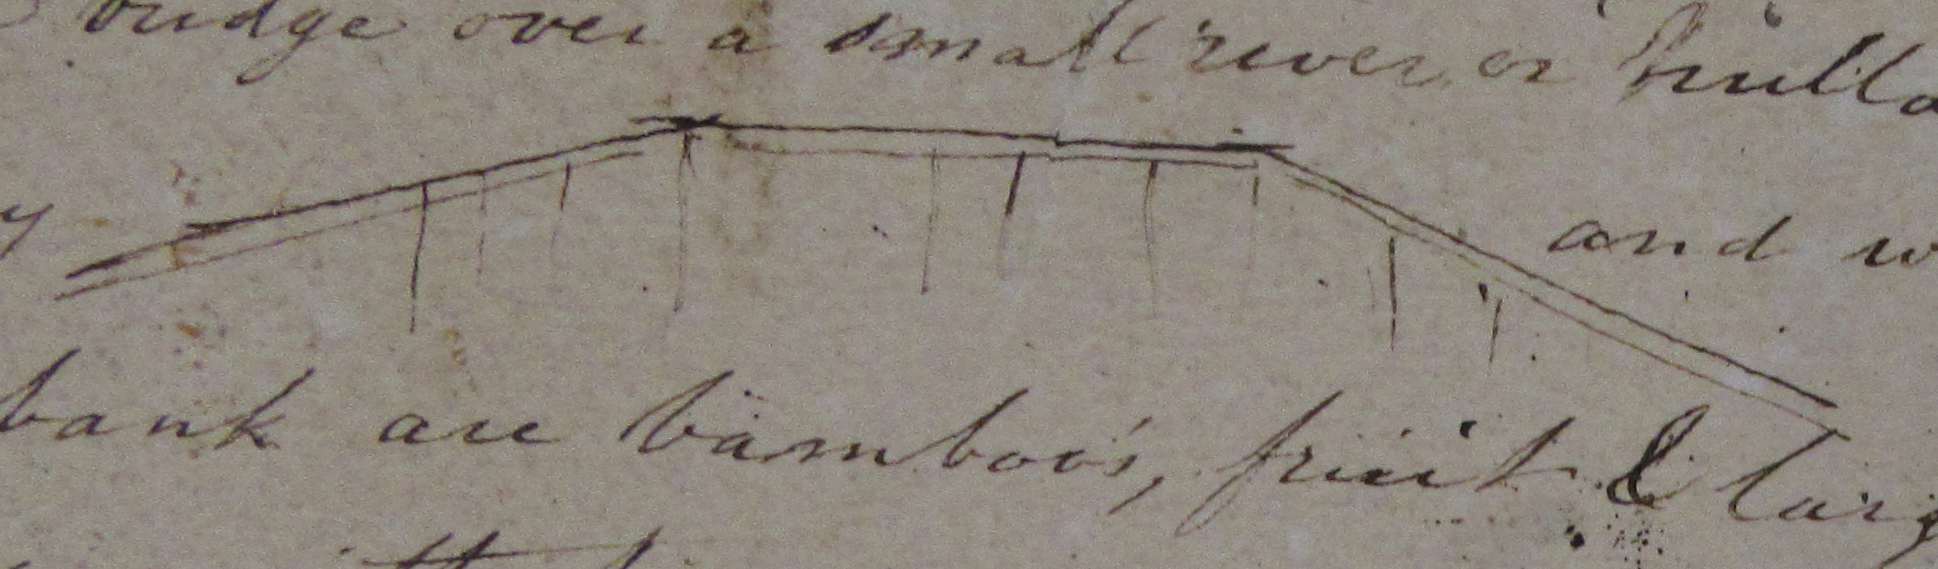 bridge over a small river or nulla
y and w
bank are bamboo's, fruit & larg